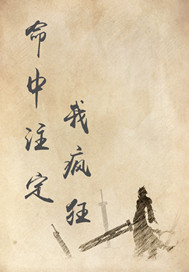 命中注定
我疯狂